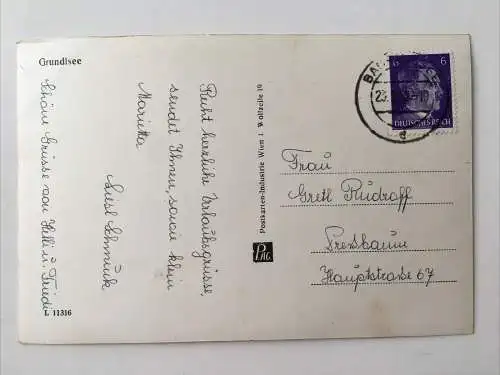 Grundlsee
Recht herzliche Urlaubsgrüsse,
sendet Ihnen, sowie klein
Marietta
Liesl Schmuck
Schöne Grüsse von Helli u. Friedi
L 11316
Postkarten-Industrie Wien 1 Wollzeile 19
PAG
6 6
DEUTSCHES REICH
BAD
23.
e
Frau
Gretl Rudroff
Pressbaum
Hauptstrasse 67